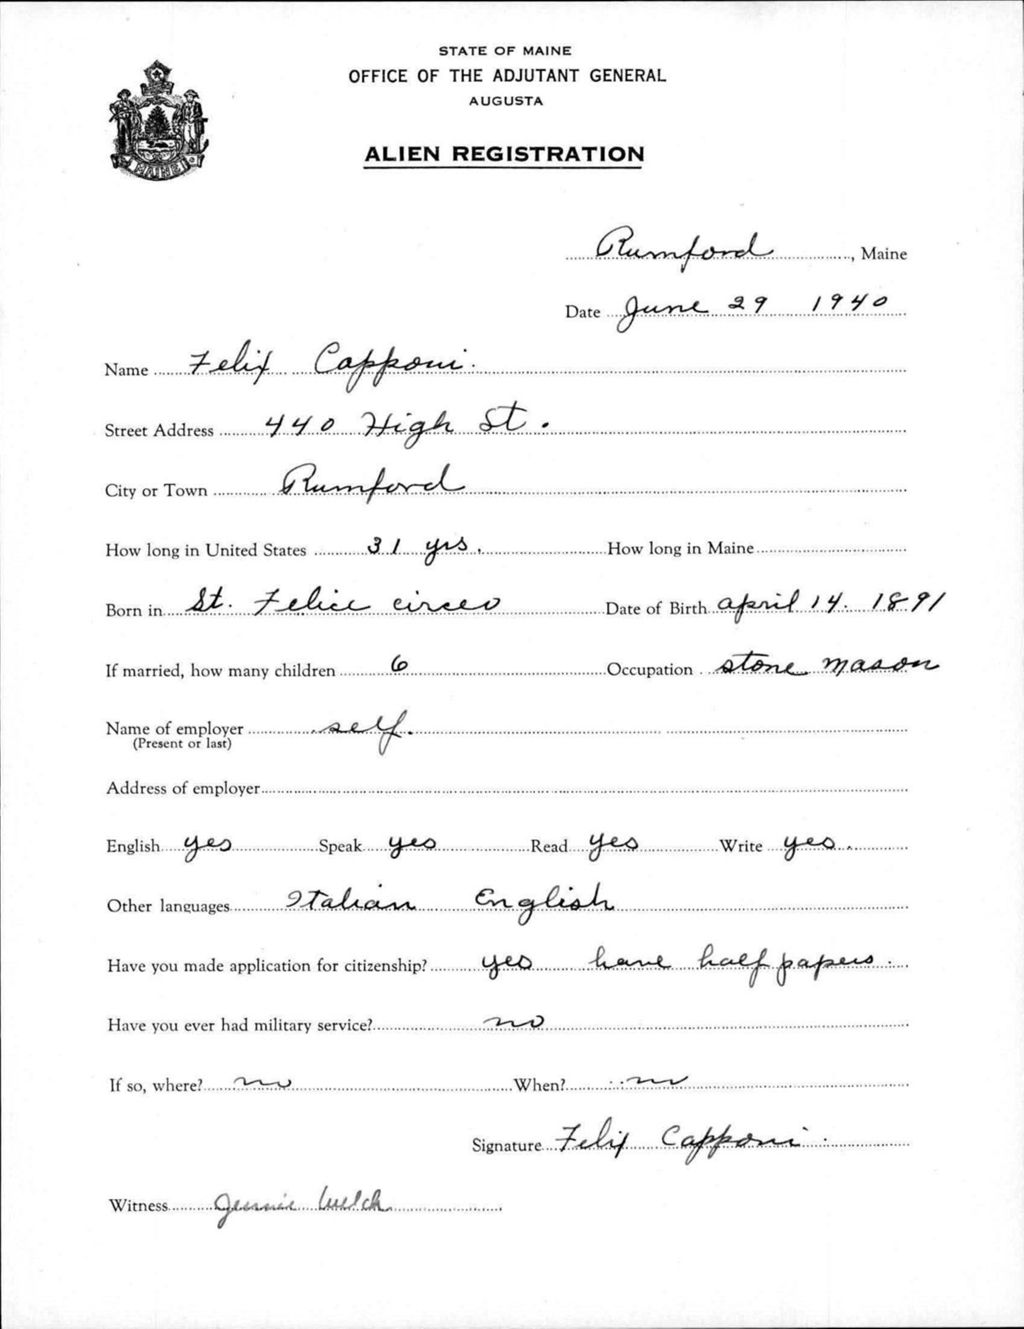 STATE OF MAINE
OFFICE OF THE ADJUTANT GENERAL
AUGUSTA
ALIEN REGISTRATION
MAINE
Rumford, Maine
Date June 29 1940
Name Felix Capponi
Street Address 440 High St.
City or Town Rumford
How long in United States 31 yrs. How long in Maine
Born in St. Felice circeo Date of Birth april 14. 1891
If married, how many children 6 Occupation stone mason
Name of employer self.
(Present or last)
Address of employer
English yes Speak yes Read yes Write yes.
Other languages Italian English
Have you made application for citizenship? yes have half papers.
Have you ever had military service? no
If so, where? no When? no
Signature Felix Capponi
Witness Jennie Welch